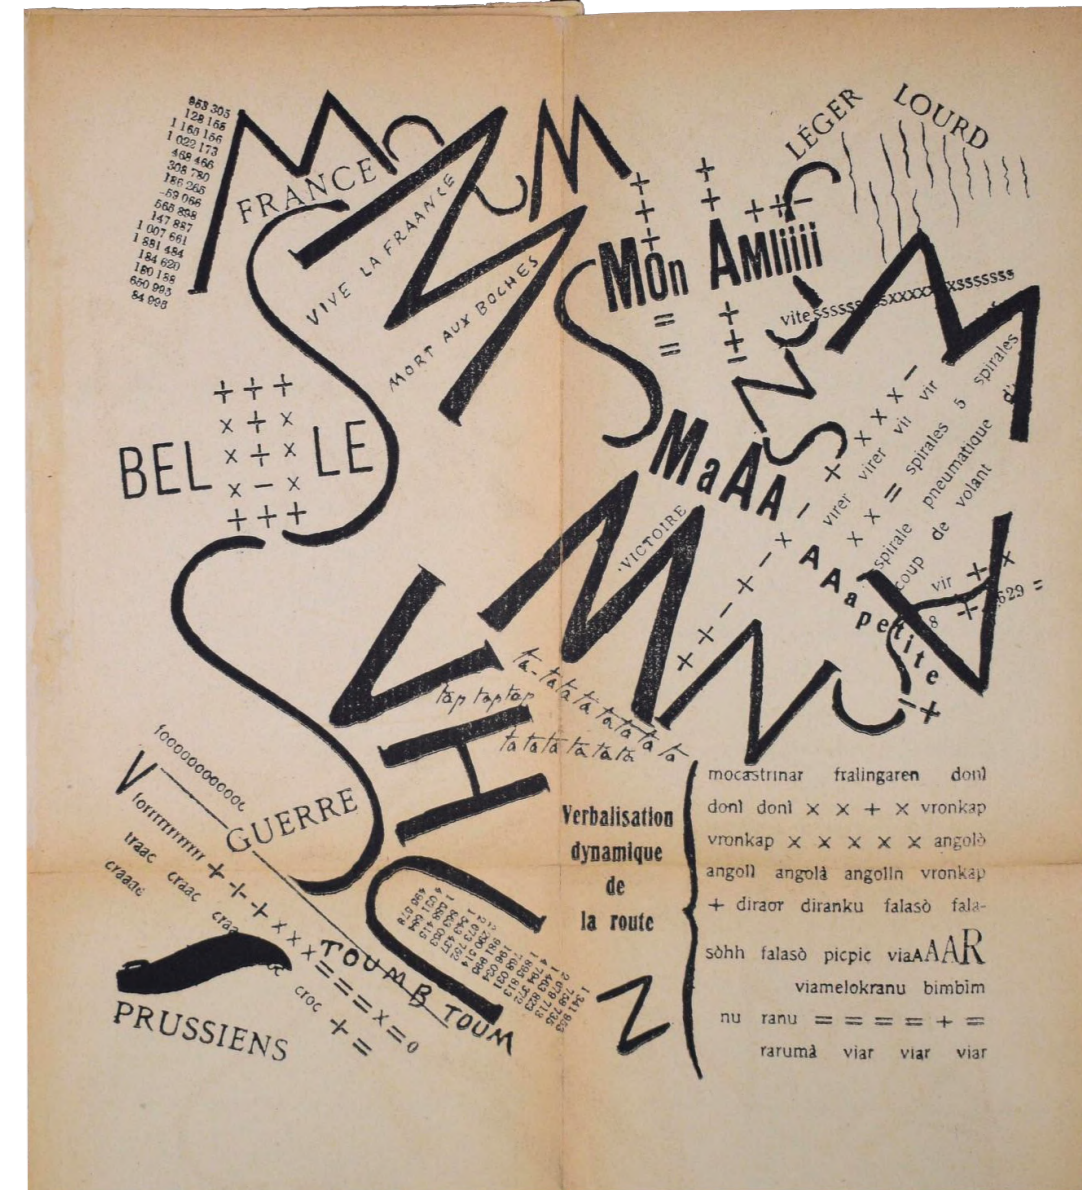 128 155
1 022 173
308 780
186 265
147 887
1 007 661
1 881 484
184 620
180 188
650 993
84 993
FRANCE
VIVE LA FRAANCE
MORT AUX BOCHES
LÉGER LOURD
+ + + + + -
MOn AMIiiii
vitesssssssssxxxxxxxsssssss
+ + +
x + x
BEL x + x LE
x - x
+ + +
MaAA
AAapetite
- +
virer virer vii vir
x x = spirales 5 spirales
spirale pneumatique d'
coup de volant
8 vir + x
629 =
VICTOIRE
VHU
ta-tatatatatatatata
tap taptap
tatatatatatata
foooooooooooc
Vlorrrrrrrrr + + + x x x = = = x = 0
GUERRE
traac craac
craaaé
croc + =
TOUMB TOUM
PRUSSIENS
N
Verbalisation
dynamique
de
la route
mocastrinar fralingaren donì
donì donì x x + x vronkap
vronkap x x x x x angolò
angolì angolà angolin vronkap
+ diraor diranku falasò fala-
sòhh falasò picpic viaAAAR
viamelokranu bimbim
nu ranu = = = = + =
rarumà viar viar viar